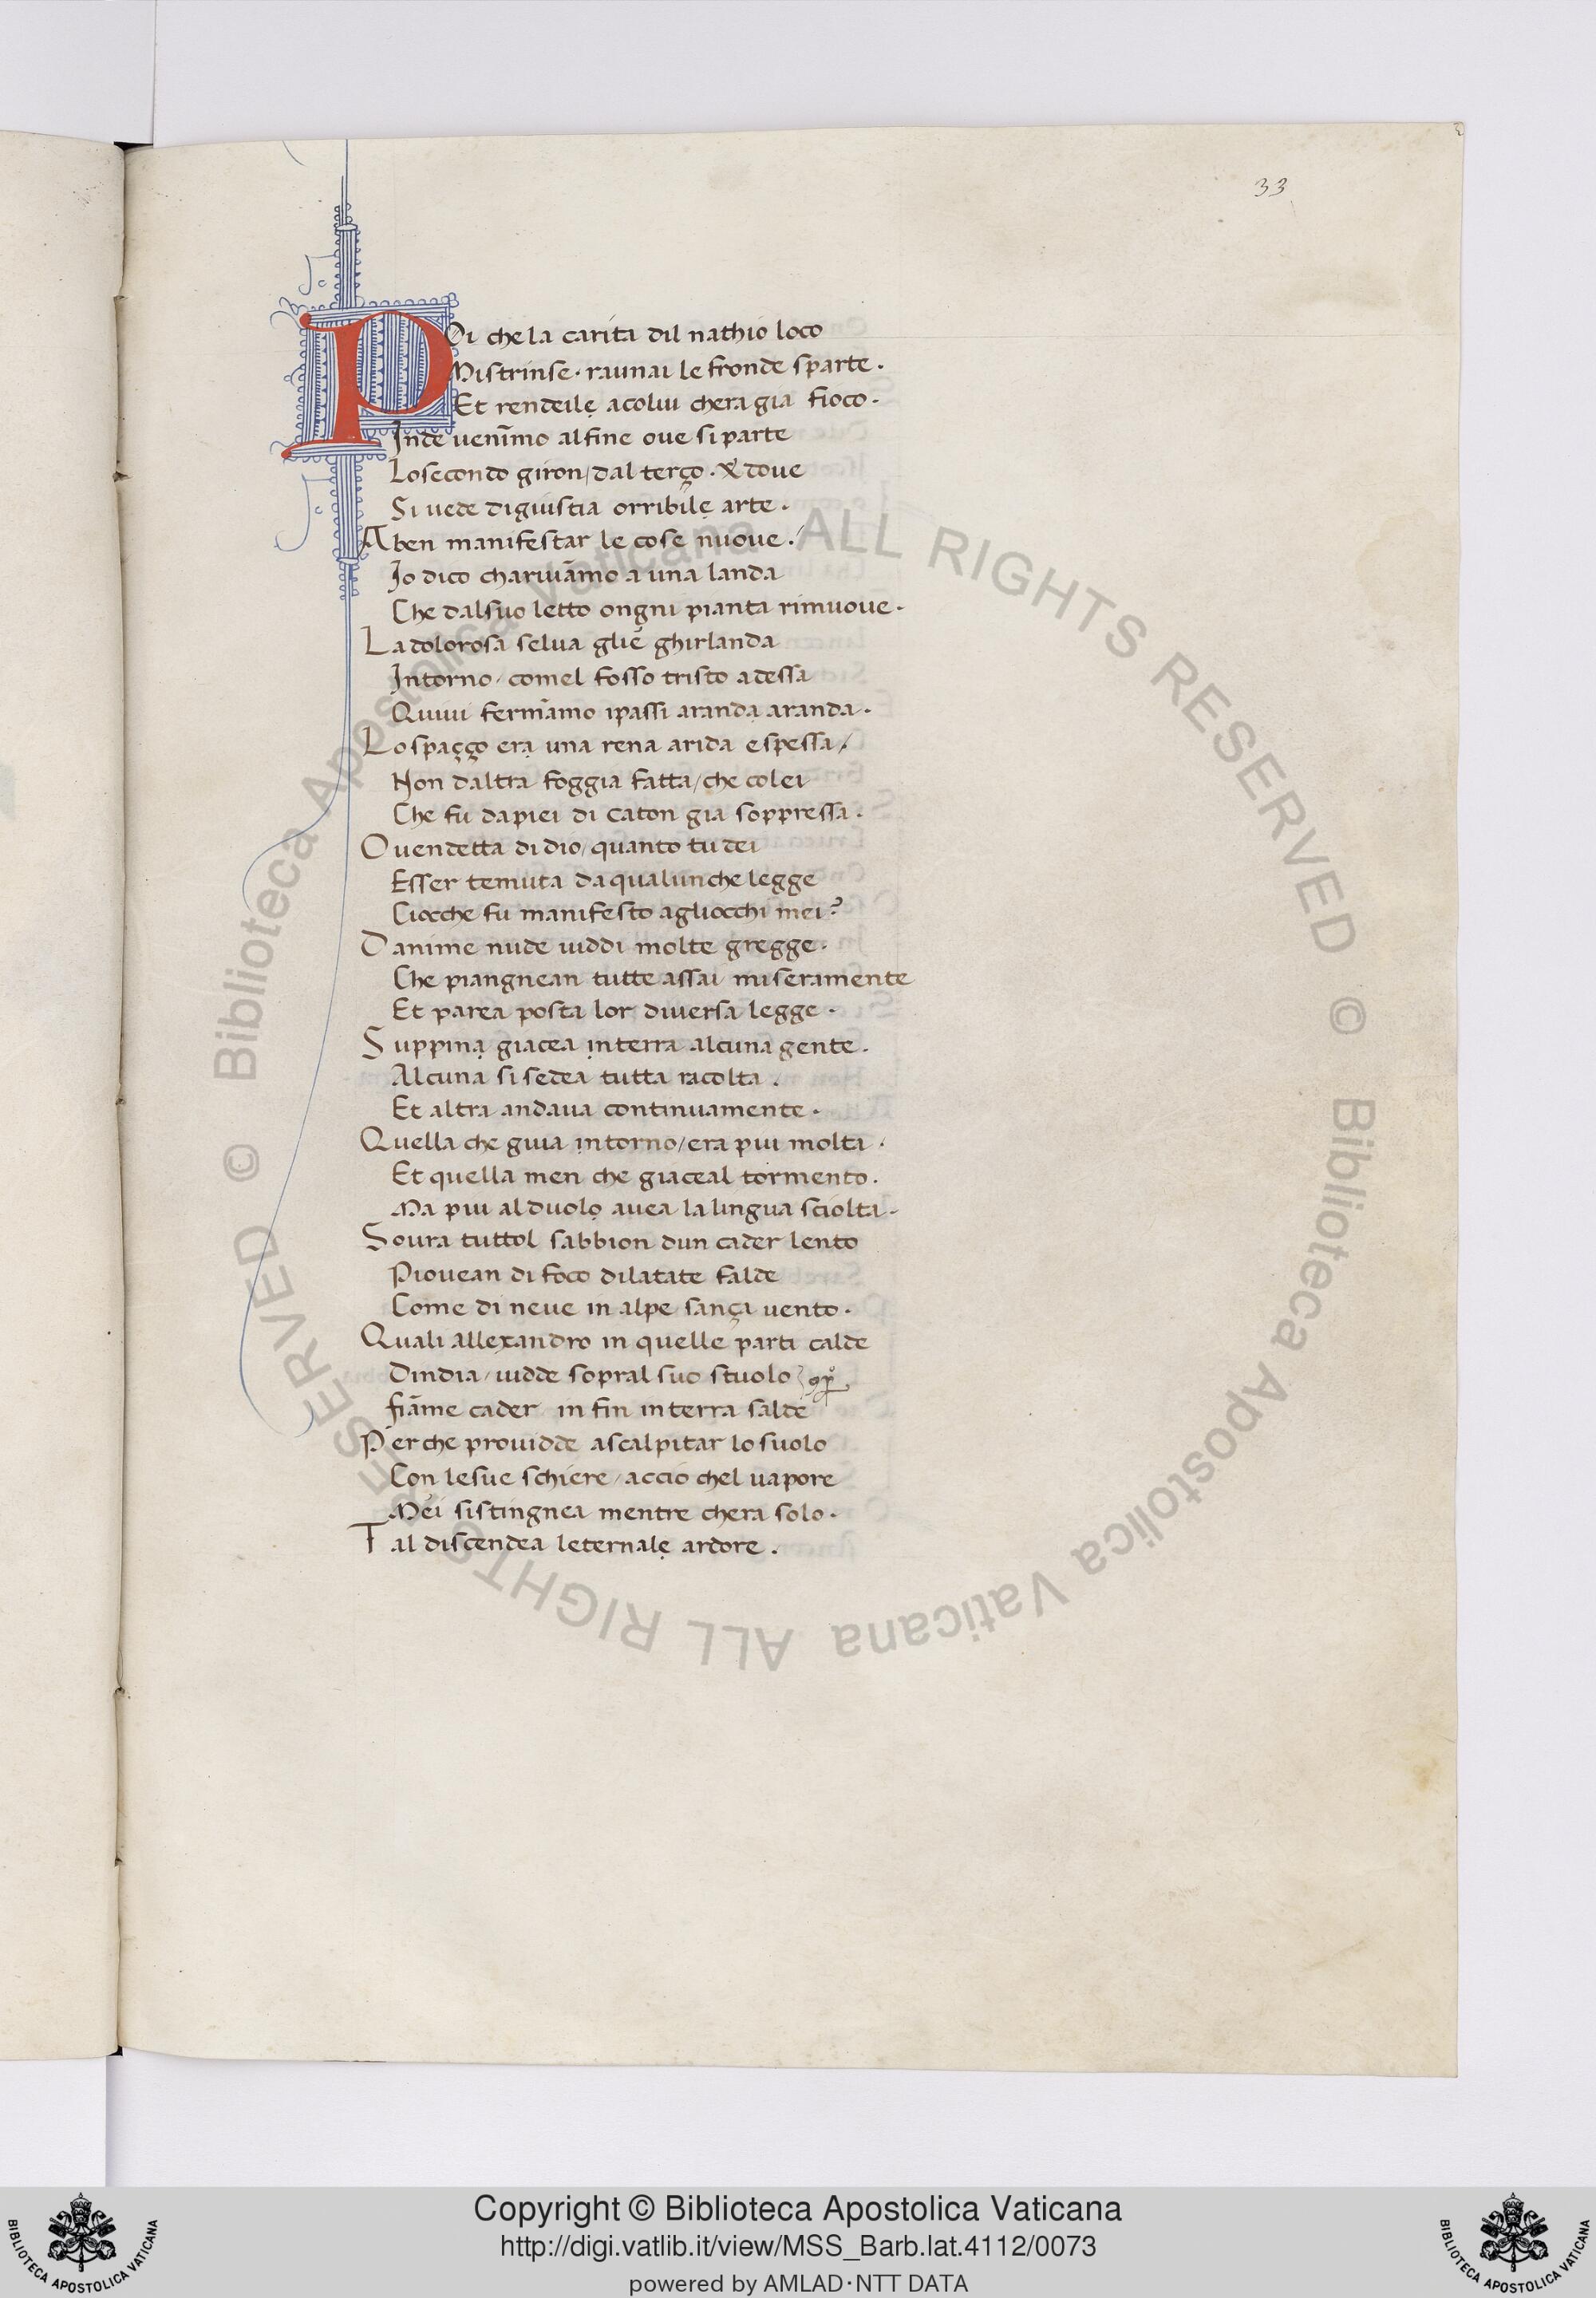 33
Poi che la carita dil nathio loco
Mistrinse · raunai le fronde sparte ·
Et rendeilẹ acolui chera gia fioco ·
Inde uenīmo alfine oue si parte
Losecondo giron / dal terço · & doue
Si uede digiustia orribilẹ arte ·
A ben manifestar le cose nuoue ·
Io dico chariuāmo a una landa
Che dalsuo letto ongni pianta rimuoue ·
La dolorosa selua glie ghirlanda
Intorno / comel fosso tristo adessa
Quiui fermāmo ipassi arandạ aranda ·
Lo spaçço erạ una rena arida espessa /
Non daltra foggia fatta / che colei
Che fu dapiei di Caton gia soppressa ·
O uendetta di dio / quanto tu dei
Esser temuta da qualunche legge
Ciocche fu manifesto agliocchi mei?
Danime nude uiddi molte gregge ·
Che piangnean tutte assai miseramente
Et parea posta lor diuersa legge ·
Suppinạ giacea interra alcuna gente ·
Alcuna si sedea tutta racolta ·
Et altra andaua continuamente ·
Quella che giua intorno / era piu molta ·
Et quella men che giaceal tormento ·
Ma piu alduolọ auea la lingua sciolta ·
Soura tuttol sabbion dun cader lento
Piouean di foco dilatate falde
Come di neue in alpe sança uento ·
Quali allexandro in quelle parti calde
Dindia / uidde sopral suo stuolo
fiāme cader in fin interra salde
Perche prouidde ascalpitar lo suolo
Con lesue schiere / accio chel uapore
Mei sistingnea mentre chera solo ·
Tal discendea leternalẹ ardore ·
© Biblioteca Apostolica Vaticana ALL RIGHTS RESERVED © Biblioteca Apostolica Vaticana ALL RIGHTS RESERVED
Copyright © Biblioteca Apostolica Vaticana
http://digi.vatlib.it/view/MSS_Barb.lat.4112/0073
powered by AMLAD·NTT DATA
BIBLIOTECA APOSTOLICA VATICANA
BIBLIOTECA APOSTOLICA VATICANA